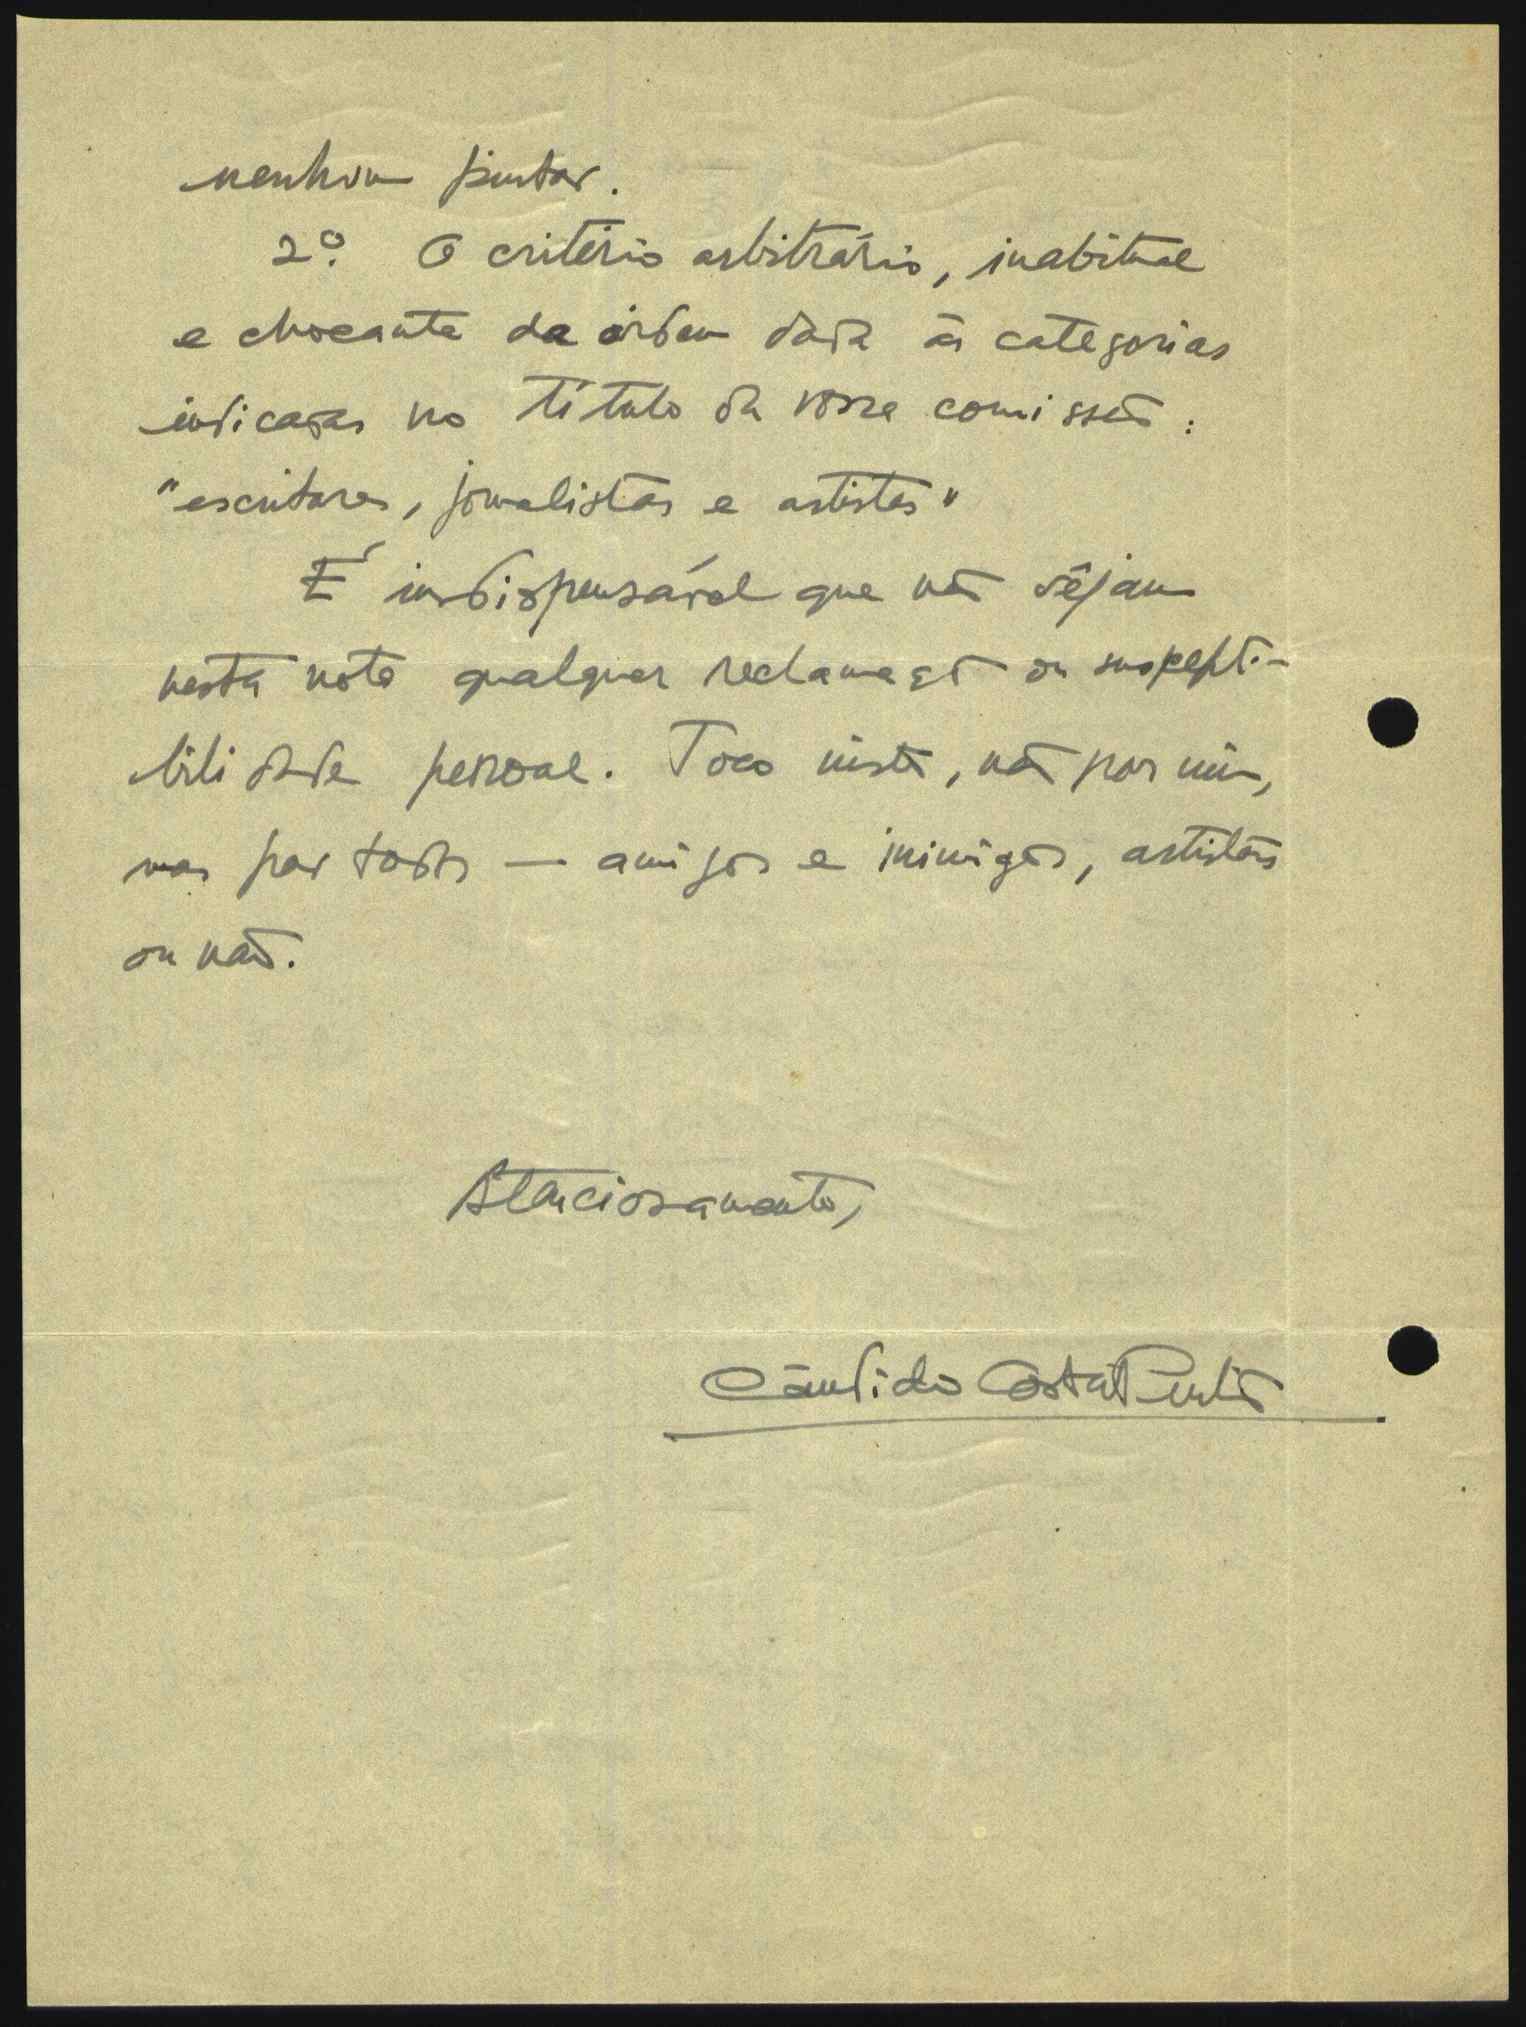 nenhum pintor.
2º. O critério arbitrário, inabitual
e chocante da órdem dada às categorias
indicadas no título da vossa comissão:
"escritores, jornalistas e artistas"
É indispensável que não vejam
nesta nota qualquer reclamação ou suscepti-
bilidade pessoal. Toco nisto, não por mim,
mas por todos — amigos e inimigos, artistas
ou não.
Atenciosamente,
Cândido Costa Pinto